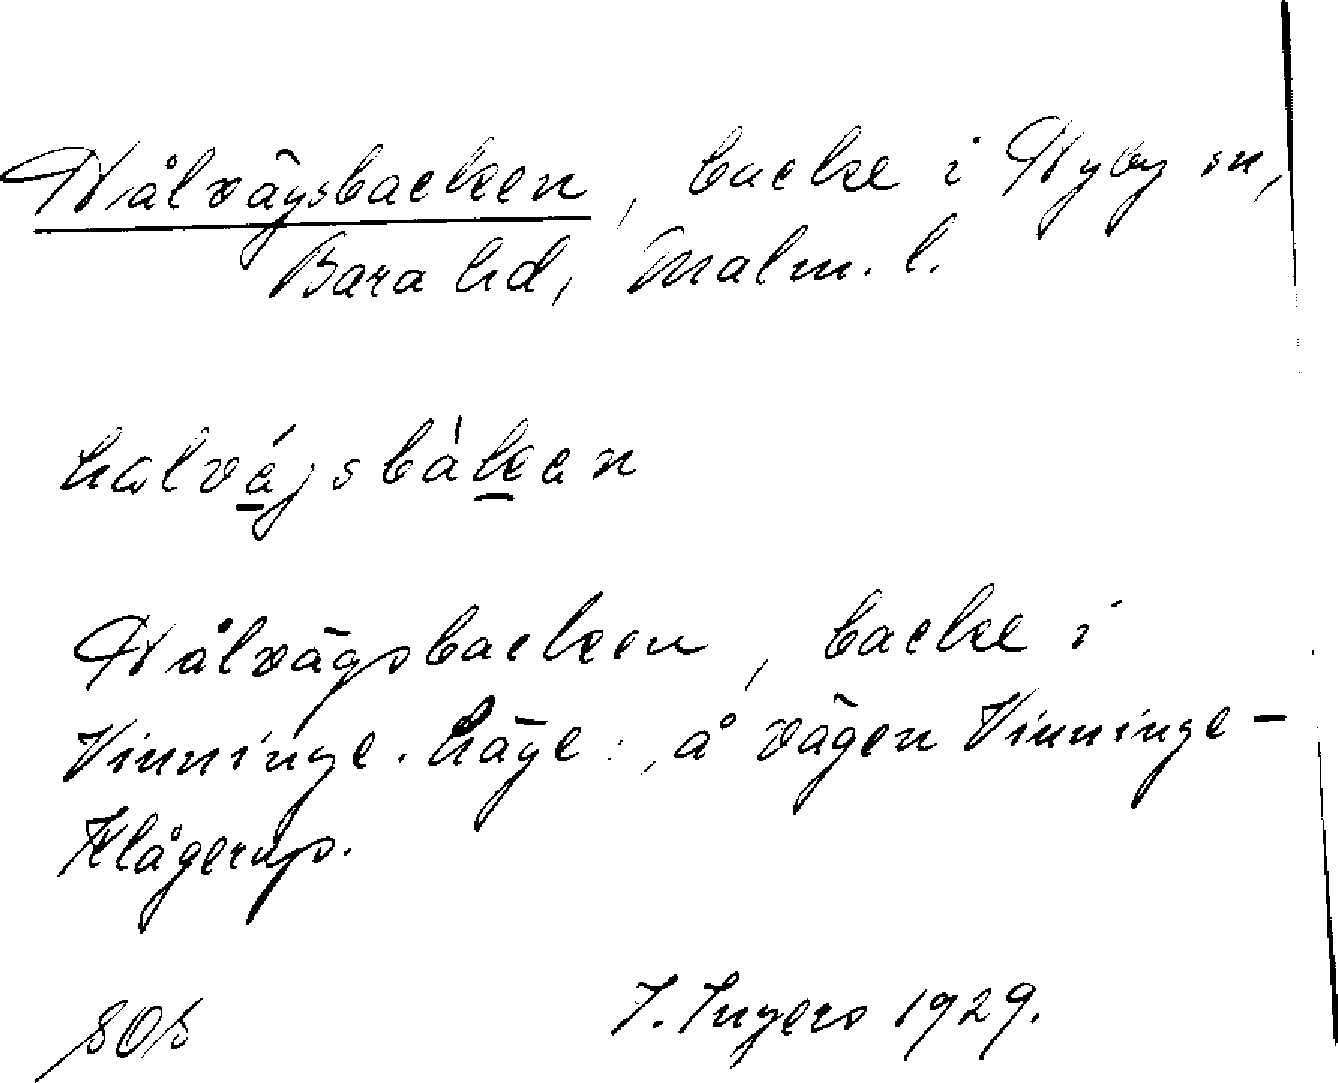 Hålvägsbacken, backe i Hyby sn,
Bara hd, Malm. l.
halvájsbàkan
Hålvägsbacken, backe i
Vinninge. Läge: å vägen Vinninge-
Klågerup.
I. Ingers 1929.